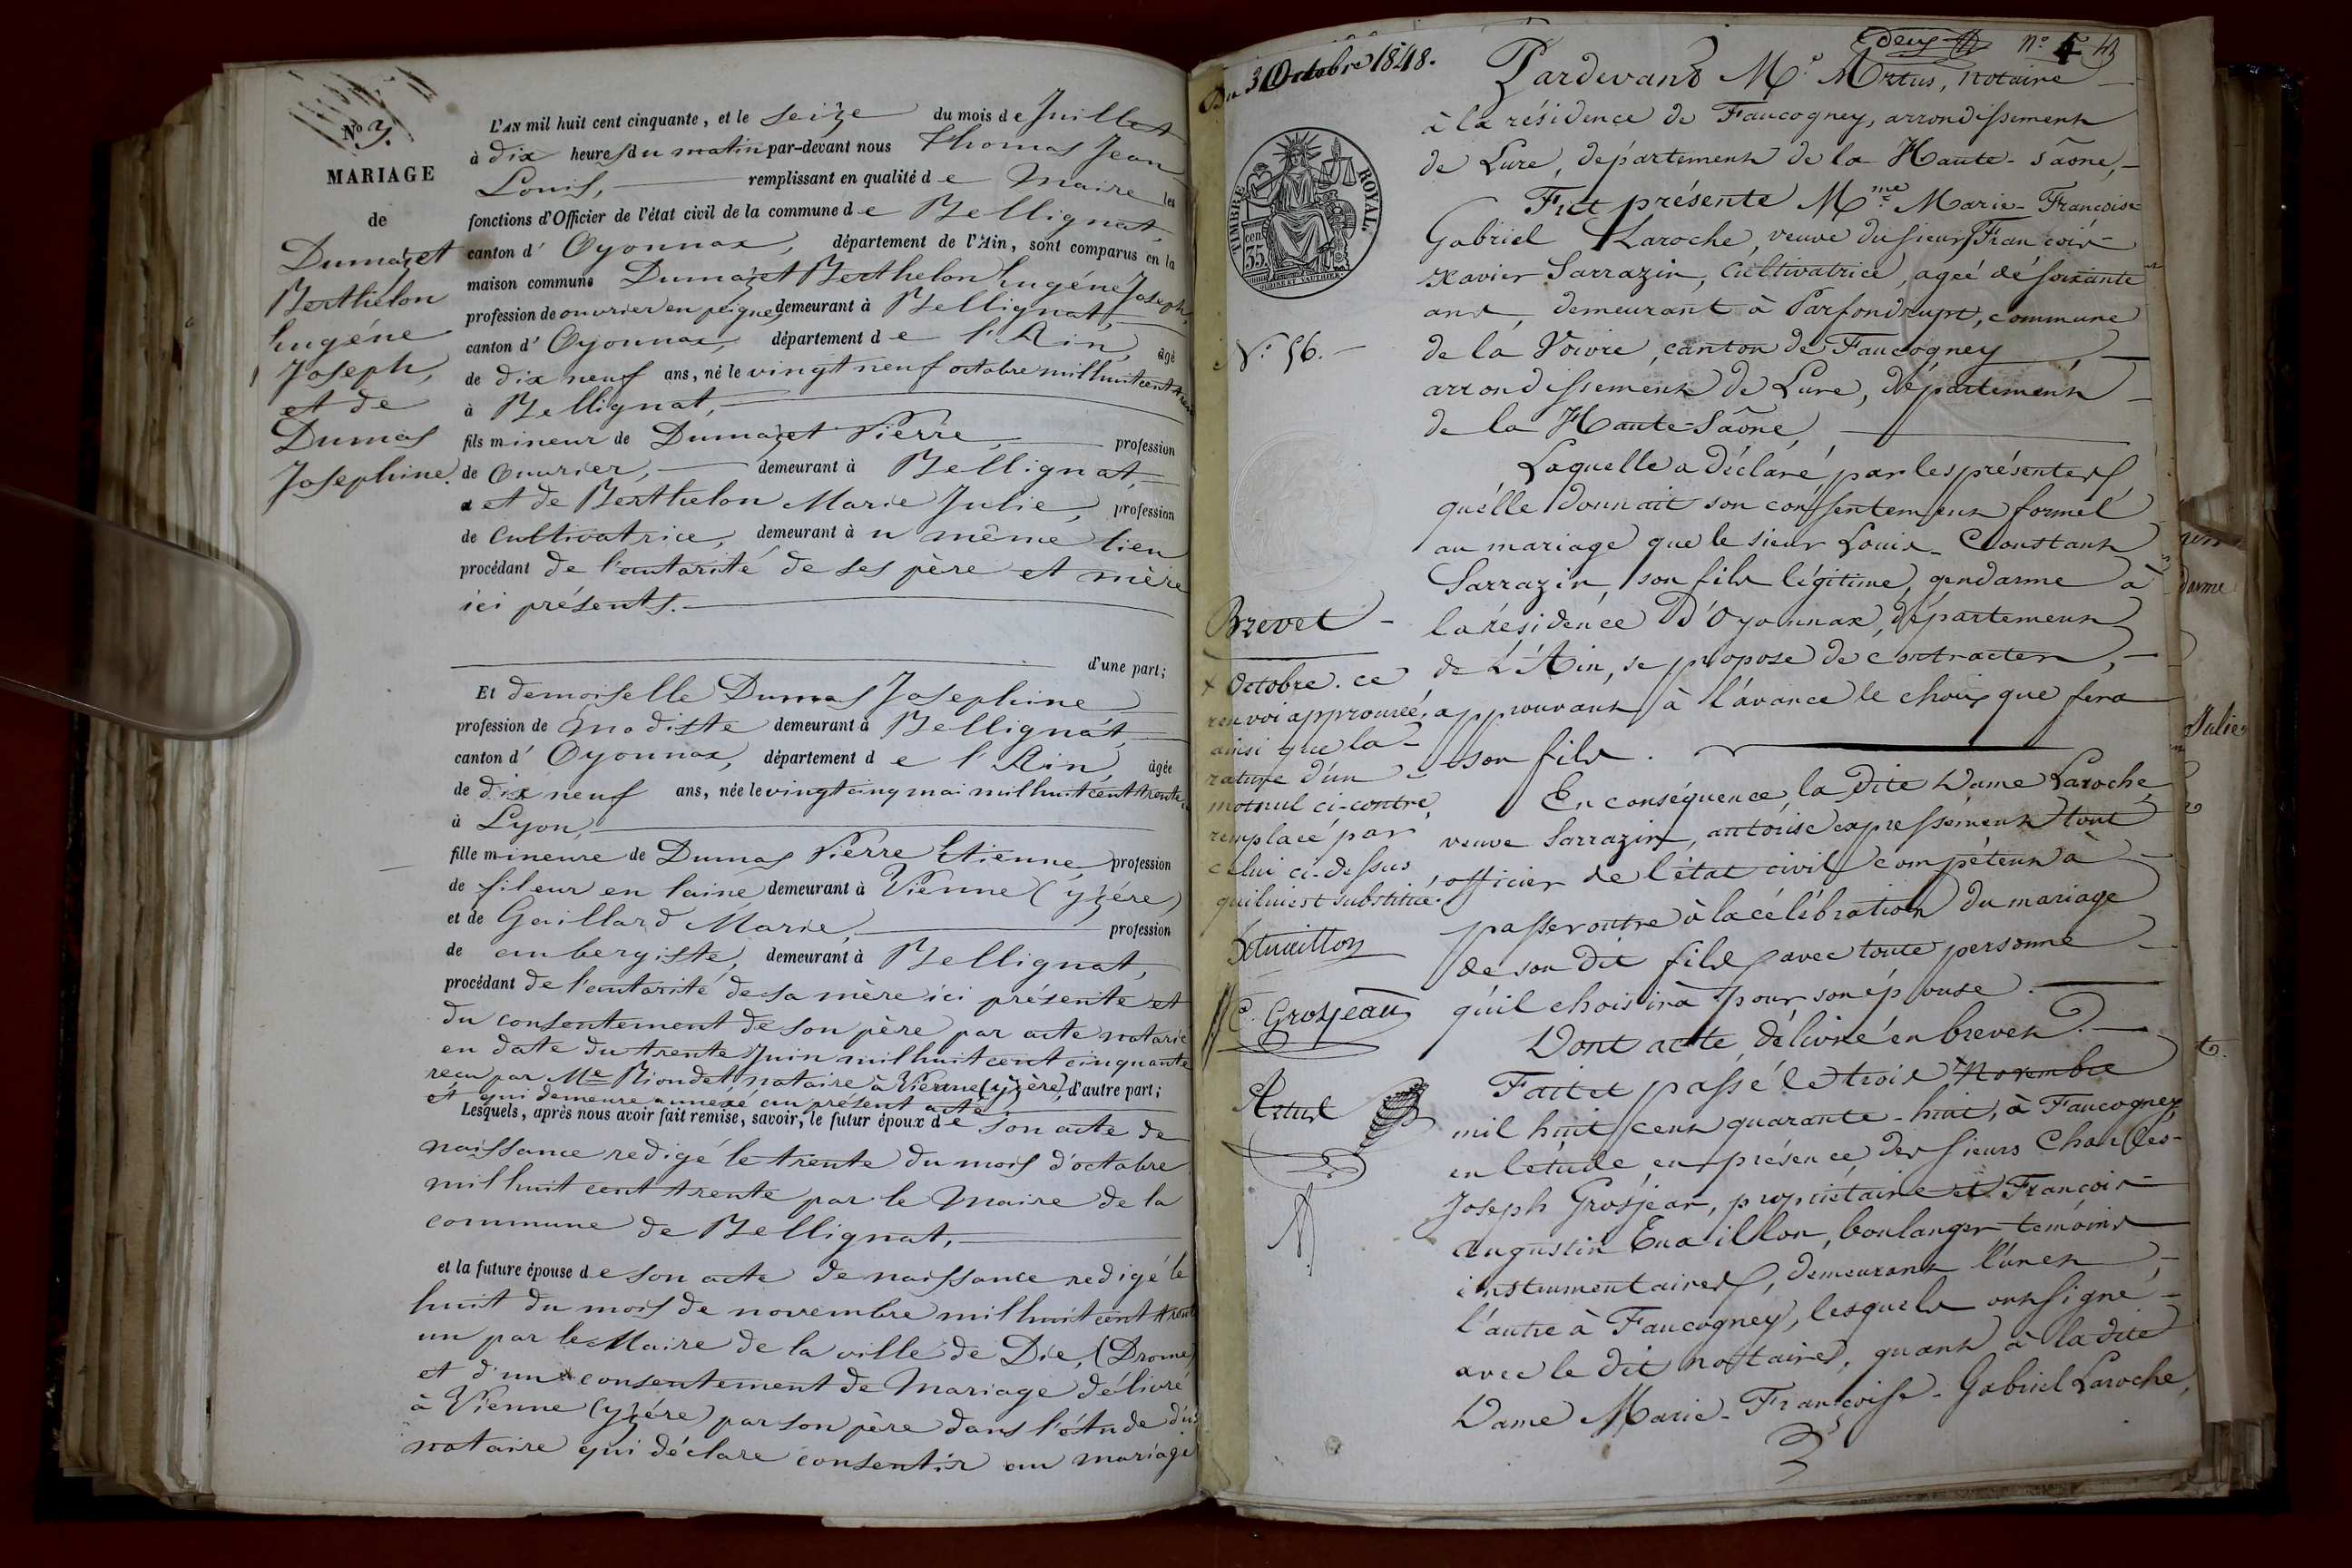 N° 3.
MARIAGE
de
Dumazet
Berthelon
Eugéne
Joseph,
et de
Dumas
Josephine.
L'AN mil huit cent cinquante, et le seize du mois de Juillet
à dix heures du matin par-devant nous Thomas Jean
Louis, remplissant en qualité de Maire les
fonctions d'Officier de l'état civil de la commune de Bellignat,
canton d' Oyonnax, département de l'Ain, sont comparus en la
maison commune Dumazet Berthelon Eugéne Joseph,
profession de ouvrier en peigne, demeurant à Bellignat,
canton d' Oyonnax, département de l'Ain, âgé
de dix neuf ans, né le vingt neuf octobre mil huit cent trente
à Bellignat,
fils mineur de Dumazet Pierre, profession
de Ouvrier, demeurant à Bellignat,
et de Berthelon Marie Julie, profession
de Cultivatrice, demeurant à u même lieu
procédant de l'autorité de ses père et mère
ici présents.
d'une part;
Et demoiselle Dumas Josephine
profession de Modiste demeurant à Bellignat,
canton d' Oyonnax, département de l'Ain, âgée
de dix neuf ans, née le vingt cinq mai mil huit cent trente
à Lyon,
fille mineure de Dumas Pierre Etienne, profession
de fileur en laine demeurant à Vienne (yzére)
et de Gaillard Marie, profession
de aubergiste, demeurant à Bellignat,
procédant de l'autorité de sa mère ici présente et
du consentement de son père par acte notarié
en date du trente Juin mil huit cent cinquante
reçu par Me Riondet notaire à Vienne (yzère), d'autre part;
et qui demeure annexé au présent acte
Lesquels, après nous avoir fait remise, savoir, le futur époux de son acte de
naissance redigé le trente du mois d'octobre
mil huit cent trente par le Maire de la
commune de Bellignat,
et la future épouse de son acte de naissance redigé le
huit du mois de novembre mil huit cent trente
un par le Maire de la ville de Die, (Drome)
et d'un consentement de Mariage délivré
à Vienne (yzére) par son père dans l'étude d'un
notaire qui déclare consentir au mariage
Du 3 Octobre 1848.
TIMBRE ROYAL
cen. 35.
N° 56.
Brevet
+ Octobre. ce
renvoi approuvé,
ainsi que la
rature d'un
mot nul ci-contre,
remplacé par
celui ci-dessus
qui lui est substitué.
C. Grosjean
Artus
deux
N° 43
Pardevant Me Artus, notaire
à la résidence de Faucogney, arrondissement
de Lure, département de la Haute-Sâone,
Fut présente Mme Marie-Françoise
Gabriel Laroche, veuve du sieur François
Xavier Sarrazin, Cultivatrice, ageé de soixante
ans, demeurant à Parfondrupt, commune
de la Voivre, canton de Faucogney,
arrondissement de Lure, département
de la Haute-Sâone,
Laquelle a déclaré, par les présentes,
qu'elle donnait son consentement formel
au mariage que le sieur Louis-Constant
Sarrazin, son fils légitime, gendarme à
la résidence D'Oyonnax, département
de L'Ain, se propose de contracter,
approuvant à l'avance le choix que fera
son fils.
En conséquence, la dite Dame Laroche,
veuve Sarrazin, autorise expressément tout
officier de l'état civil compétent à
passer outre à la célébration du mariage
de son dit fils avec toute personne
qu'il choisira pour son épouse.
Dont acte délivré en brevet.
Fait et passé le trois + Novembre
mil huit cent quarante-huit, à Faucogney,
en l'étude, en présence des sieurs Charles-
Joseph Grosjean, propriétaire et François
Augustin Euvaillon, boulanger temoins
instrumentaires, demeurant l'un et
l'autre à Faucogney, lesquels ont signé
avec le dit notaire, quant à la dite
Dame Marie-Françoise-Gabriel Laroche,
darme
Julie